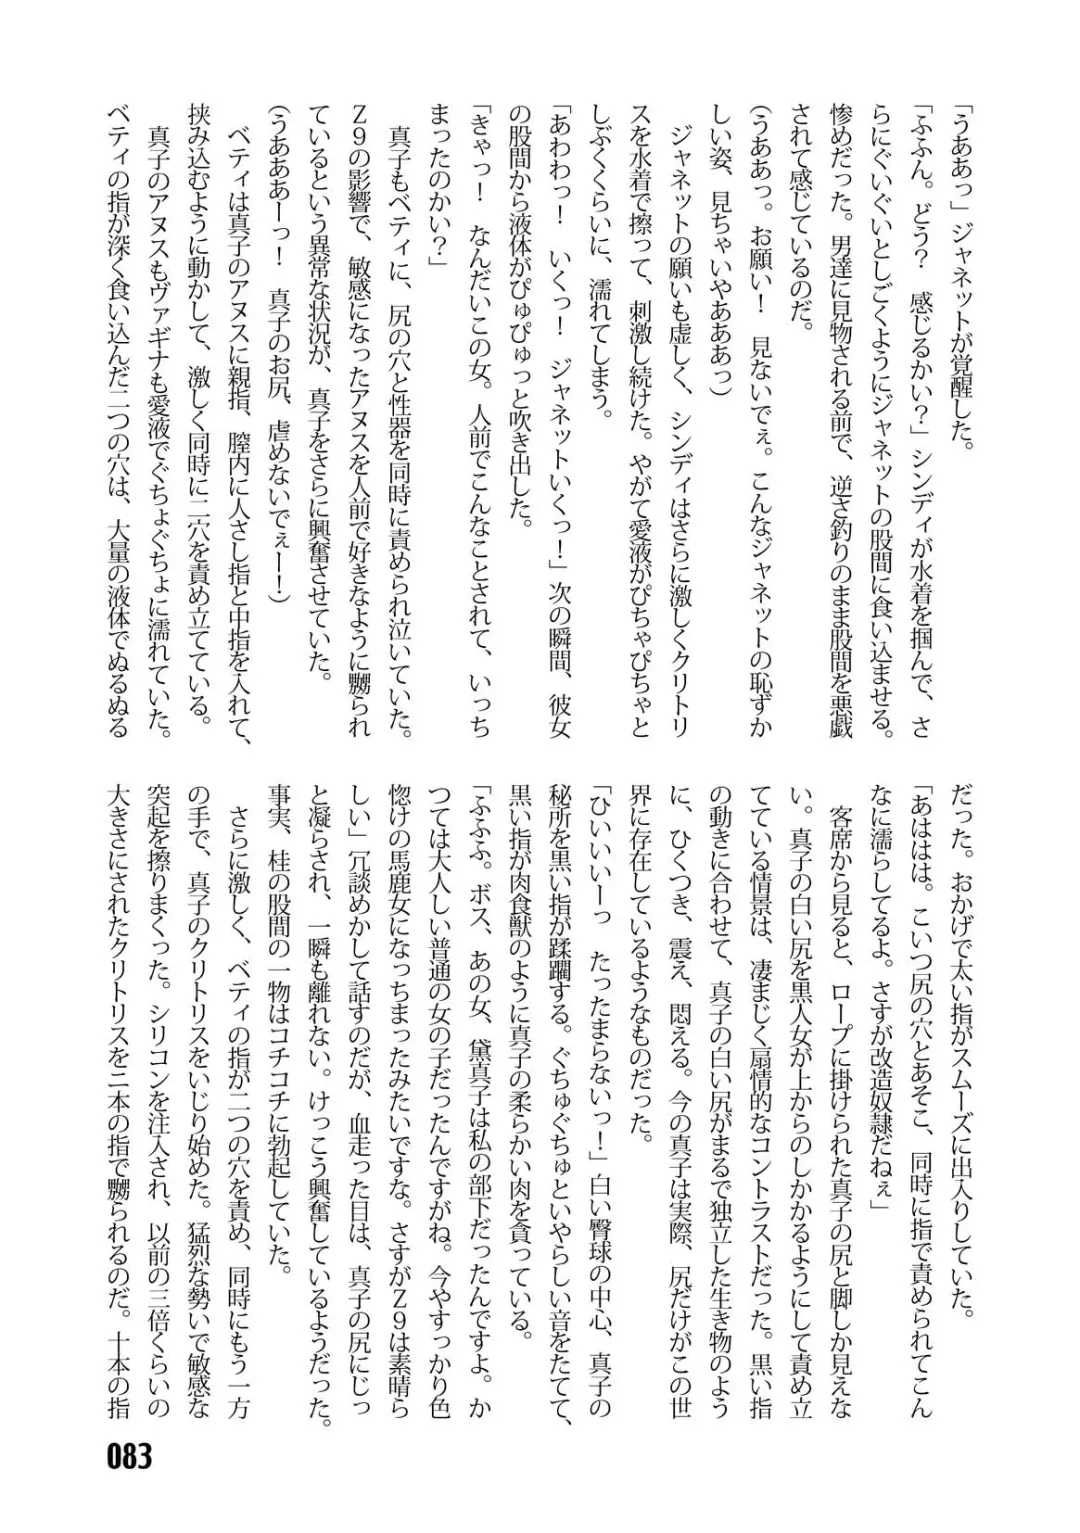 「うああっ」ジャネットが覚醒した。
「ふふん。どう？　感じるかい？」シンディが水着を掴んで、さ
らにぐいぐいとしごくようにジャネットの股間に食い込ませる。
惨めだった。男達に見物される前で、逆さ釣りのまま股間を悪戯
されて感じているのだ。
（うああっ。お願い！　見ないでぇ。こんなジャネットの恥ずか
しい姿、見ちゃいやあああっ）
　ジャネットの願いも虚しく、シンディはさらに激しくクリトリ
スを水着で擦って、刺激し続けた。やがて愛液がぴちゃぴちゃと
しぶくくらいに、濡れてしまう。
「あわわっ！　いくっ！　ジャネットいくっ！」次の瞬間、彼女
の股間から液体がぴゅぴゅっと吹き出した。
「きゃっ！　なんだいこの女。人前でこんなことされて、いっち
まったのかい？」
　真子もベティに、尻の穴と性器を同時に責められ泣いていた。
Ｚ９の影響で、敏感になったアヌスを人前で好きなように嬲られ
ているという異常な状況が、真子をさらに興奮させていた。
（うあああーっ！　真子のお尻、虐めないでぇー！）
　ベティは真子のアヌスに親指、膣内に人さし指と中指を入れて、
挟み込むように動かして、激しく同時に二穴を責め立てている。
　真子のアヌスもヴァギナも愛液でぐちょぐちょに濡れていた。
ベティの指が深く食い込んだ二つの穴は、大量の液体でぬるぬる
だった。おかげで太い指がスムーズに出入りしていた。
「あははは。こいつ尻の穴とあそこ、同時に指で責められてこん
なに濡らしてるよ。さすが改造奴隷だねぇ」
　客席から見ると、ロープに掛けられた真子の尻と脚しか見えな
い。真子の白い尻を黒人女が上からのしかかるようにして責め立
てている情景は、凄まじく扇情的なコントラストだった。黒い指
の動きに合わせて、真子の白い尻がまるで独立した生き物のよう
に、ひくつき、震え、悶える。今の真子は実際、尻だけがこの世
界に存在しているようなものだった。
「ひいいいーっ　たったまらないっ！」白い臀球の中心、真子の
秘所を黒い指が蹂躙する。ぐちゅぐちゅといやらしい音をたてて、
黒い指が肉食獣のように真子の柔らかい肉を貪っている。
「ふふふ。ボス、あの女、黛真子は私の部下だったんですよ。か
つては大人しい普通の女の子だったんですがね。今やすっかり色
惚けの馬鹿女になっちまったみたいですな。さすがＺ９は素晴ら
しい」冗談めかして話すのだが、血走った目は、真子の尻にじっ
と凝らされ、一瞬も離れない。けっこう興奮しているようだった。
事実、桂の股間の一物はコチコチに勃起していた。
　さらに激しく、ベティの指が二つの穴を責め、同時にもう一方
の手で、真子のクリトリスをいじり始めた。猛烈な勢いで敏感な
突起を擦りまくった。シリコンを注入され、以前の三倍くらいの
大きさにされたクリトリスを二本の指で嬲られるのだ。十本の指
083